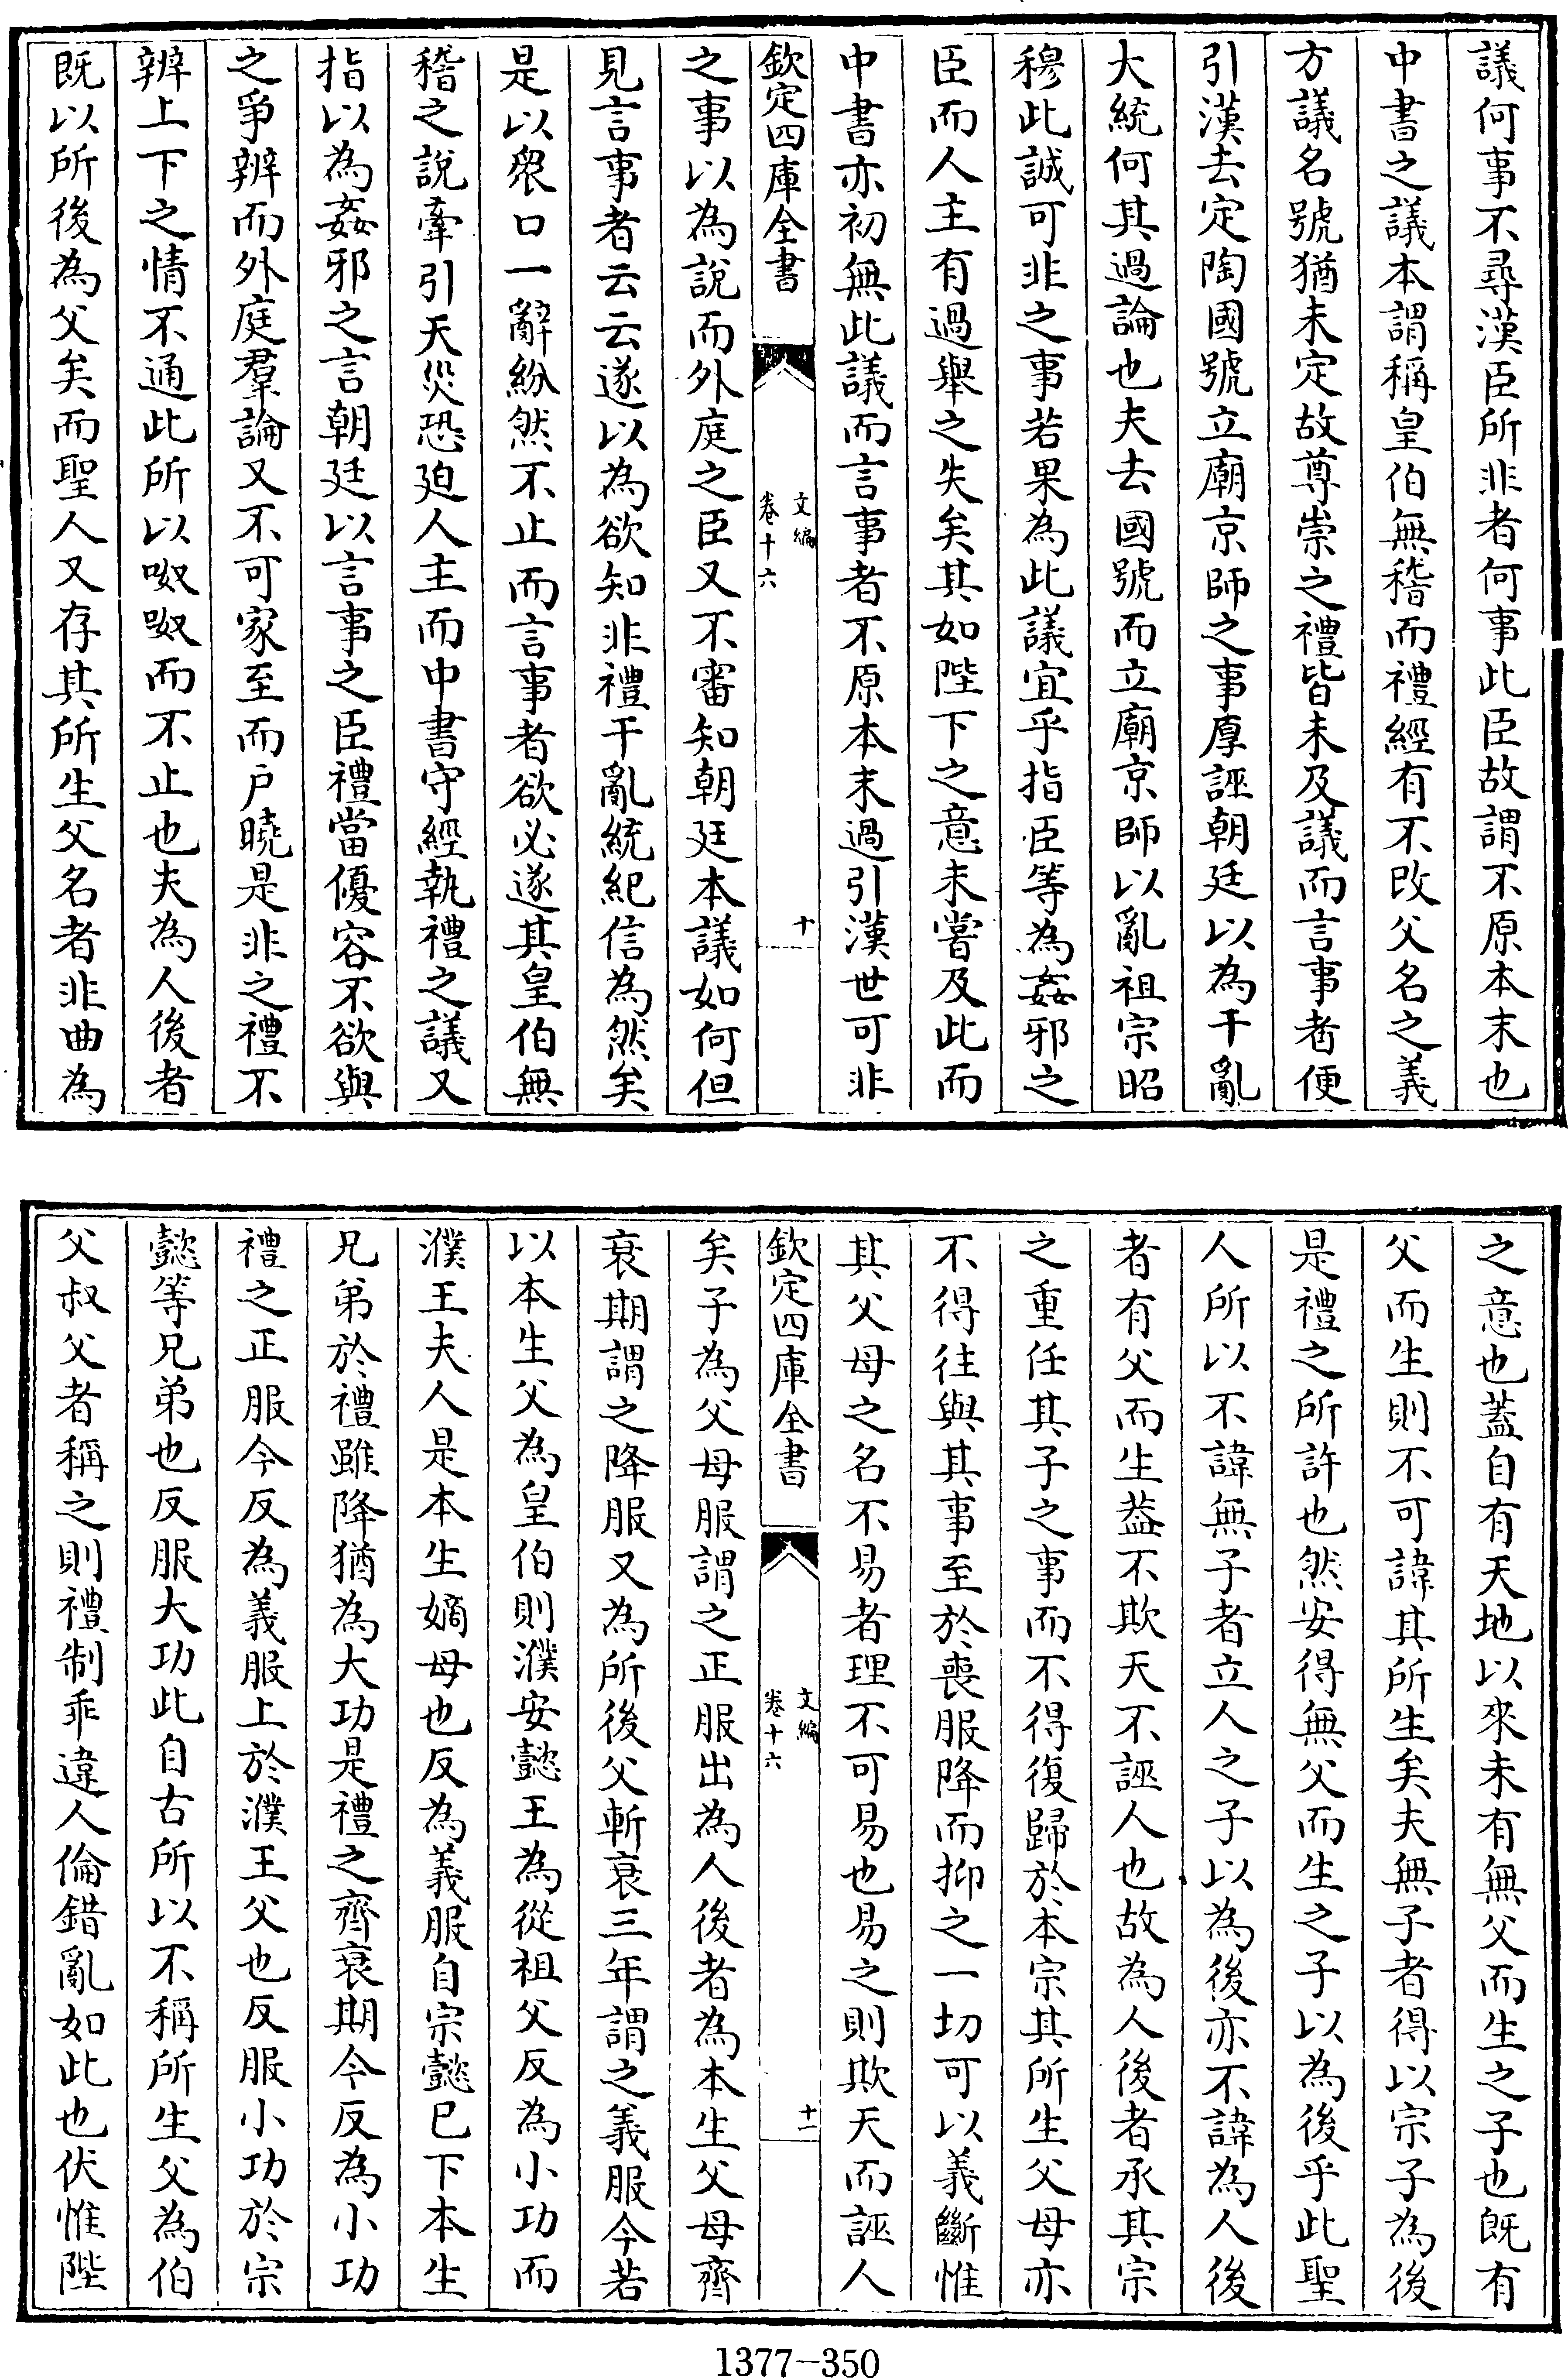 議何事不尋漢臣所非者何事此臣故謂不原本末也
中書之議本謂稱皇伯無稽而禮經有不改父名之義
方議名號猶未定故尊崇之禮皆未及議而言事者便
引漢去定陶國號立廟京師之事厚誣朝廷以為干亂
大統何其過論也夫去國號而立廟京師以亂祖宗昭
穆此誠可非之事若果為此議宜乎指臣等為姦邪之
臣而人主有過舉之失矣其如陛下之意未嘗及此而
中書亦初無此議而言事者不原本末過引漢世可非
欽定四庫全書
文編
卷十六
十
之事以為說而外庭之臣又不審知朝廷本議如何但
見言事者云云遂以為欲知非禮干亂統紀信為然矣
是以衆口一辭紛然不止而言事者欲必遂其皇伯無
稽之說牽引天災恐廹人主而中書守經執禮之議又
指以為姦邪之言朝廷以言事之臣禮當優容不欲與
之爭辨而外庭羣論又不可家至而户曉是非之禮不
辨上下之情不通此所以呶呶而不止也夫為人後者
既以所後為父矣而聖人又存其所生父名者非曲為
之意也蓋自有天地以來未有無父而生之子也既有
父而生則不可諱其所生矣夫無子者得以宗子為後
是禮之所許也然安得無父而生之子以為後乎此聖
人所以不諱無子者立人之子以為後亦不諱為人後
者有父而生葢不欺天不誣人也故為人後者承其宗
之重任其子之事而不得復歸於本宗其所生父母亦
不得往與其事至於喪服降而抑之一切可以義斷惟
其父母之名不易者理不可易也易之則欺天而誣人
欽定四庫全書
文編
卷十六
十一
矣子為父母服謂之正服出為人後者為本生父母齊
衰期謂之降服又為所後父斬衰三年謂之義服今若
以本生父為皇伯則濮安懿王為從祖父反為小功而
濮王夫人是本生嫡母也反為義服自宗懿已下本生
兄弟於禮雖降猶為大功是禮之齊衰期今反為小功
禮之正服今反為義服上於濮王父也反服小功於宗
懿等兄弟也反服大功此自古所以不稱所生父為伯
父叔父者稱之則禮制乖違人倫錯亂如此也伏惟陛
1377-350